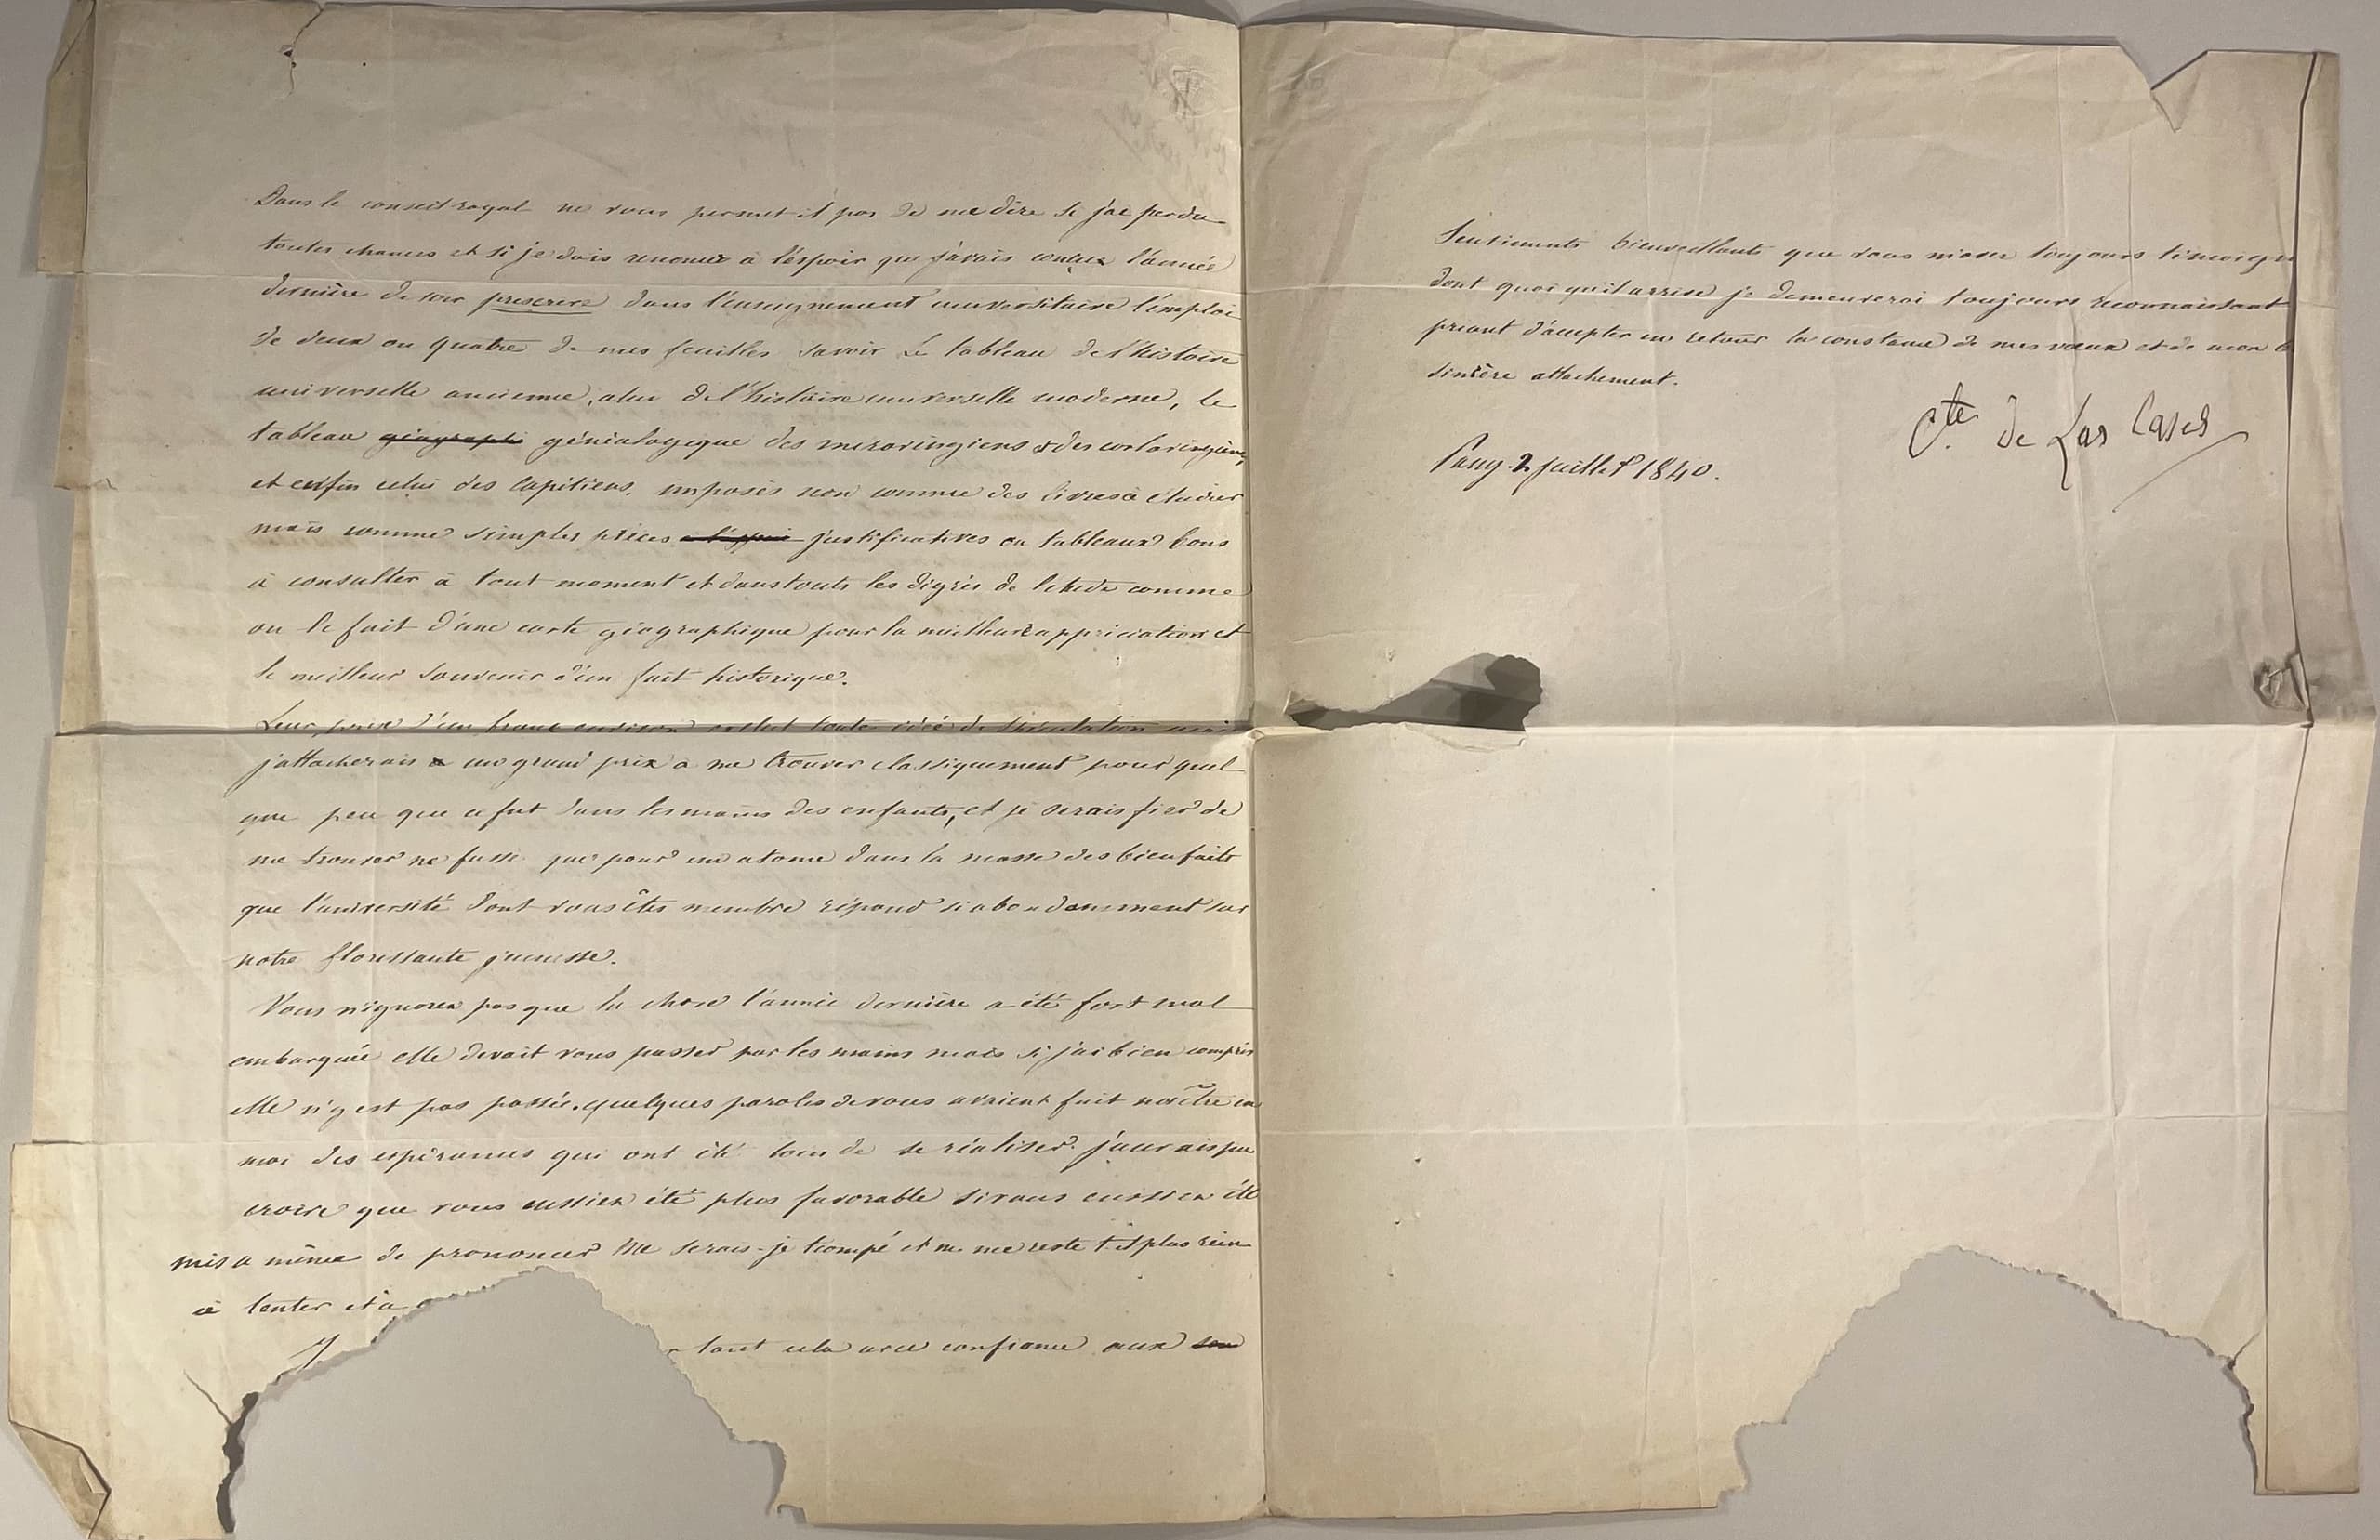 Dans le conseil royal ne vous permet-il pas de me dire si j'ai perdu
toutes chances et si je dois renoncer à l'espoir que j'avais conçu l'année
dernière de voir prescrire dans l'enseignement universitaire l'emploi
de deux ou quatre de mes feuilles savoir le tableau de l'histoire
universelle ancienne, celui de l'histoire universelle moderne, le
tableau géographi généalogique des merovingiens & des carlovingiens,
et enfin celui des Capétiens. imposés non comme des livres à étudier
mais comme simples pièces à l'appui justificatives ou tableaux bons
à consulter à tout moment et dans touts les dégrés de l'étude comme
on le fait d'une carte géographique pour la meilleure appréciation et
le meilleur souvenir d'un fait historique.
Leur prix d'un franc exclut toute idée de spéculation mais
j'attacherais un grand prix à me trouver classiquement pour quel
que peu que ce fut dans les mains des enfants, et je serais fier de
me trouver ne fusse que pour un atome dans la masse des bienfaits
que l'université dont vous êtes membre répand si abondamment sur
notre florissante jeunesse.
Vous n'ignorez pas que la chose l'année dernière a été fort mal
embarquée elle devait vous passer par les mains mais si j'ai bien compris
elle n'y est pas passée. quelques paroles de vous avaient fait naître en
moi des espérances qui ont été loin de se réaliser. j'aurais pu
croire que vous eussiez été plus favorable si vous eussiez été
mis a même de prononcer Me serais-je trompé et ne me reste t-il plus rien
à tenter et à
tout cela avec confiance aux sen
Sentiments bienveillants que vous m'avez toujours témoign
dont quoi qu'il arrive je demeurerai toujours reconnaissant
priant d'accepter en retour la constance de mes vœux et de mon
sincère attachement.
Cte de Las Cases
Passy 2 juillet 1840.